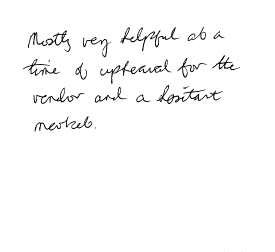 Mostly very helpful at a
time of upheaval for the
vendor and a hesitant
market.